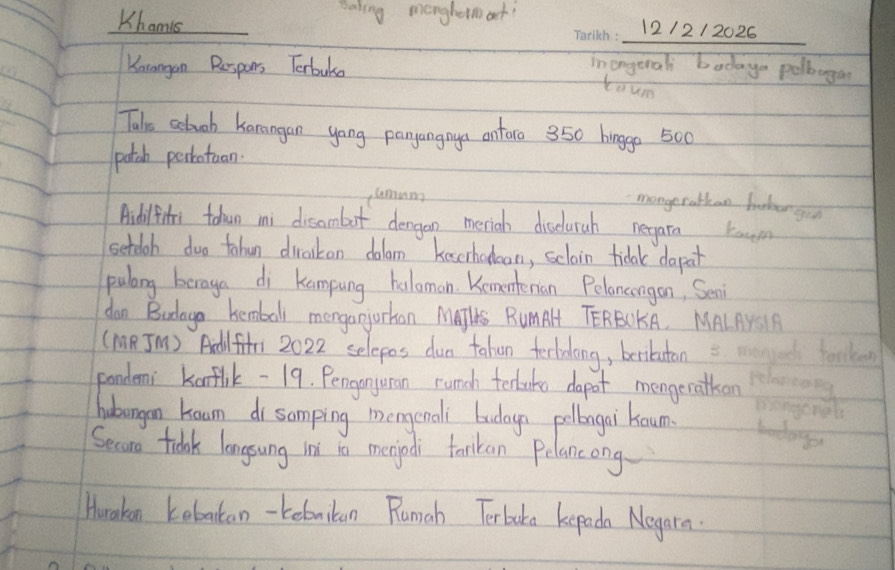 saling menghormati
Khamis
Tarikh : 12/2/2026
Karangan Respons Terbuka
mengenali budaya pelbagai
kaum
Tulis sebuah karangan yang panjangnya antara 350 hingga 500
patah perkataan.
(umum)
mengeratkan hubungan
kaum
Aidilfitri tahun ini disambut dengan meriah diseluruh negara
setelah dua tahun diraikan dalam kesederhanaan, selain tidak dapat
pulang beraya di kampung halaman. Kementerian Pelancongan, Seni
dan Budaya kembali menganjurkan MAJLIS RUMAH TERBUKA MALAYSIA
(MRTM) Aidilfitri 2022 selepas dua tahun terhalang, berikutan
= menjadi tarikan
pelancong
pandemi -19. Penganjuran rumah terbuka dapat mengeratkan
mengenali
budaya
hubungan kaum di samping mengenali budaya pelbagai kaum.
Secara tidak langsung ini ia menjadi tarikan Pelancong
Huraikan kebaikan-kebaikan Rumah Terbuka kepada Negara.